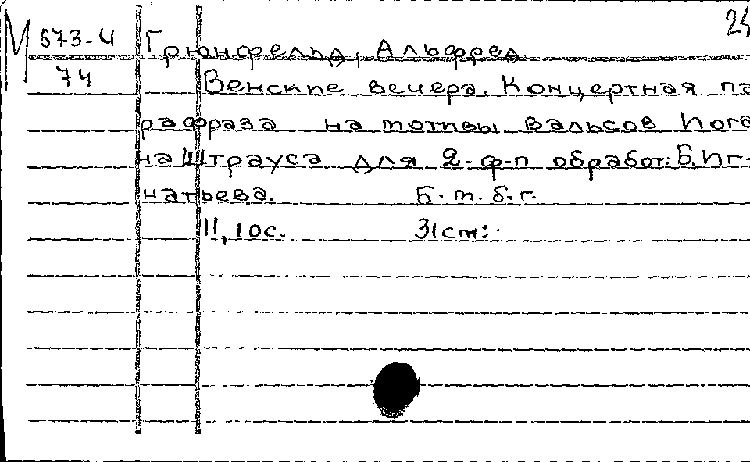 М 573-4 Грюнфельд, Альфред 24
74 Венские вечера. Концертная па
рафраза на мотивы вальсов Иога
на Штрауса для 2-ф-п обработ: Б. Иг-
натьева. Б. т. б. г.
11, 10с. 31cm: